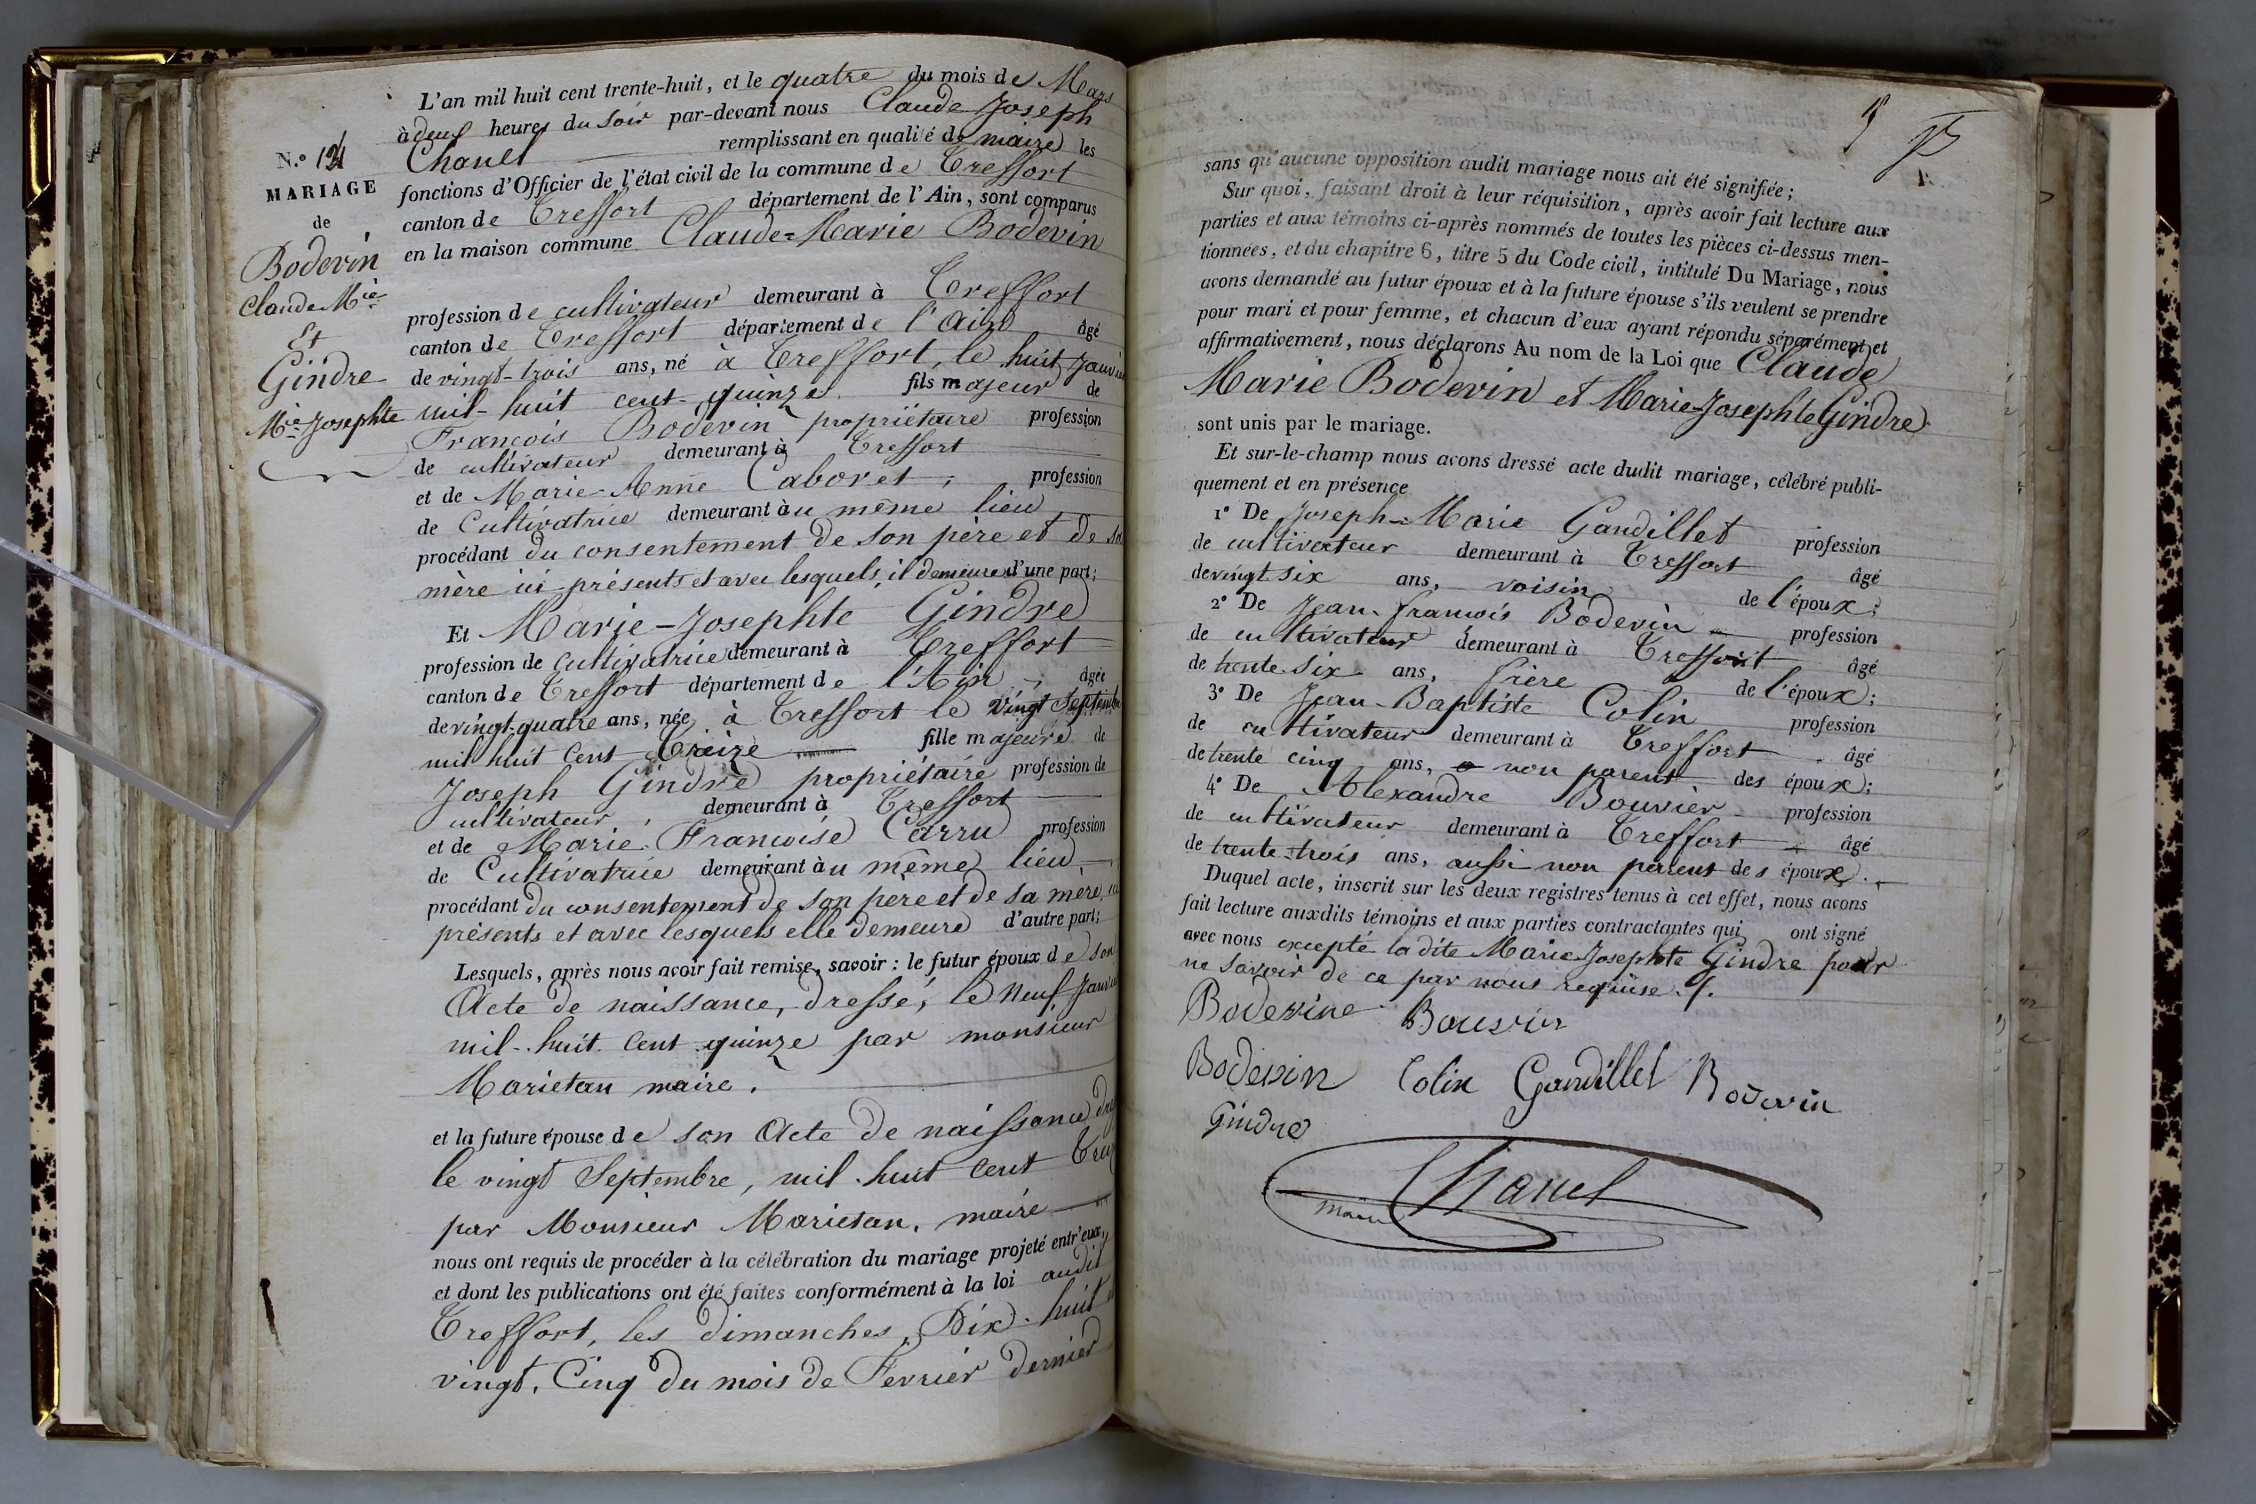 L'an mil huit cent trente-huit, et le quatre du mois de Mars
à deux heures du soir par-devant nous Claude Joseph
Chanel remplissant en qualité de maire les
fonctions d'Officier de l'état civil de la commune de Treffort
canton de Treffort département de l'Ain, sont comparus
en la maison commune Claude-Marie Bodevin
profession de cultivateur demeurant à Treffort
canton de Treffort département de l'Ain âgé
de vingt-trois ans, né à Treffort, le huit Janvier
mil-huit cent-quinze fils majeur de
François Bodevin propriétaire profession
de cultivateur demeurant à Treffort
et de Marie-Anne Caboret, profession
de Cultivatrice demeurant au même lieu
procédant du consentement de son père et de sa
mère ici présents et avec lesquels il demeure d'une part;
Et Marie-Josephte Gindre
profession de cultivatrice demeurant à Treffort
canton de Treffort département de l'Ain, âgée
de vingt-quatre ans, née à Treffort le vingt Septembre
mil huit cent treize fille majeure de
Joseph Gindre propriétaire profession de
cultivateur, demeurant à Treffort
et de Marie-Françoise Carru profession
de Cultivatrice demeurant au même lieu
procédant du consentement de son père et de sa mère, ici
présents et avec lesquels elle demeure d'autre part;
Lesquels, après nous avoir fait remise, savoir : le futur époux de son
Acte de naissance, dressé, le neuf Janvier
mil-huit cent quinze par monsieur
Marietan maire.
et la future épouse de son Acte de naissance
le vingt Septembre, mil-huit cent
par Monsieur Marietan, maire
nous ont requis de procéder à la célébration du mariage projeté entr'eux,
et dont les publications ont été faites conformément à la loi audit
Treffort, les dimanches, Dix-huit
vingt-Cinq du mois de Fevrier dernier
N.°
MARIAGE
de
Bodevin
Claude Mie
Et
Gindre
Mie Josephte
sans qu'aucune opposition audit mariage nous ait été signifiée;
Sur quoi, faisant droit à leur réquisition, après avoir fait lecture aux
parties et aux témoins ci-après nommés de toutes les pièces ci-dessus men-
tionnées, et du chapitre 6, titre 5 du Code civil, intitulé Du Mariage, nous
avons demandé au futur époux et à la future épouse s'ils veulent se prendre
pour mari et pour femme, et chacun d'eux ayant répondu séparément et
affirmativement, nous déclarons Au nom de la Loi que Claude
Marie Bodevin et Marie-Josephte Gindre
sont unis par le mariage.
Et sur-le-champ nous avons dressé acte dudit mariage, célébré publi-
quement et en présence
1° De Joseph-Marie Gandillet profession
de cultivateur demeurant à Treffort âgé
de vingt-six ans, voisin de l'époux;
2° De Jean-françois Bodevin profession
de cultivateur demeurant à Treffort âgé
de trente-six ans, frère de l'époux;
3° De Jean-Baptiste Colin profession
de cultivateur demeurant à Treffort âgé
de trente cinq ans, non parent des époux;
4° De Alexandre Bouvier profession
de cultivateur demeurant à Treffort âgé
de trente-trois ans, aussi non parent des époux.
Duquel acte, inscrit sur les deux registres tenus à cet effet, nous avons
fait lecture auxdits témoins et aux parties contractantes qui ont signé
avec nous excepté la dite Marie Josephte Gindre pour
ne savoir de ce par nous requise.
Bodevine Bouvier
Bodevin Colin Gandillet Bodevin
Gindre
Chanel
maire